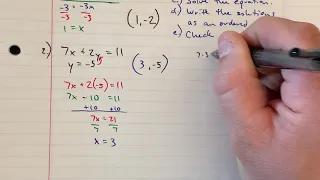 -3 = -3x
-3 -3
1 = x
(1, -2)
2) 7x + 2y = 11
y = -5
(3, -5)
7x + 2(-5) = 11
7x - 10 = 11
+10 +10
7x = 21
7 7
x = 3
c) Solve the equation.
d) Write the solution
as an ordered
e) Check
7·3